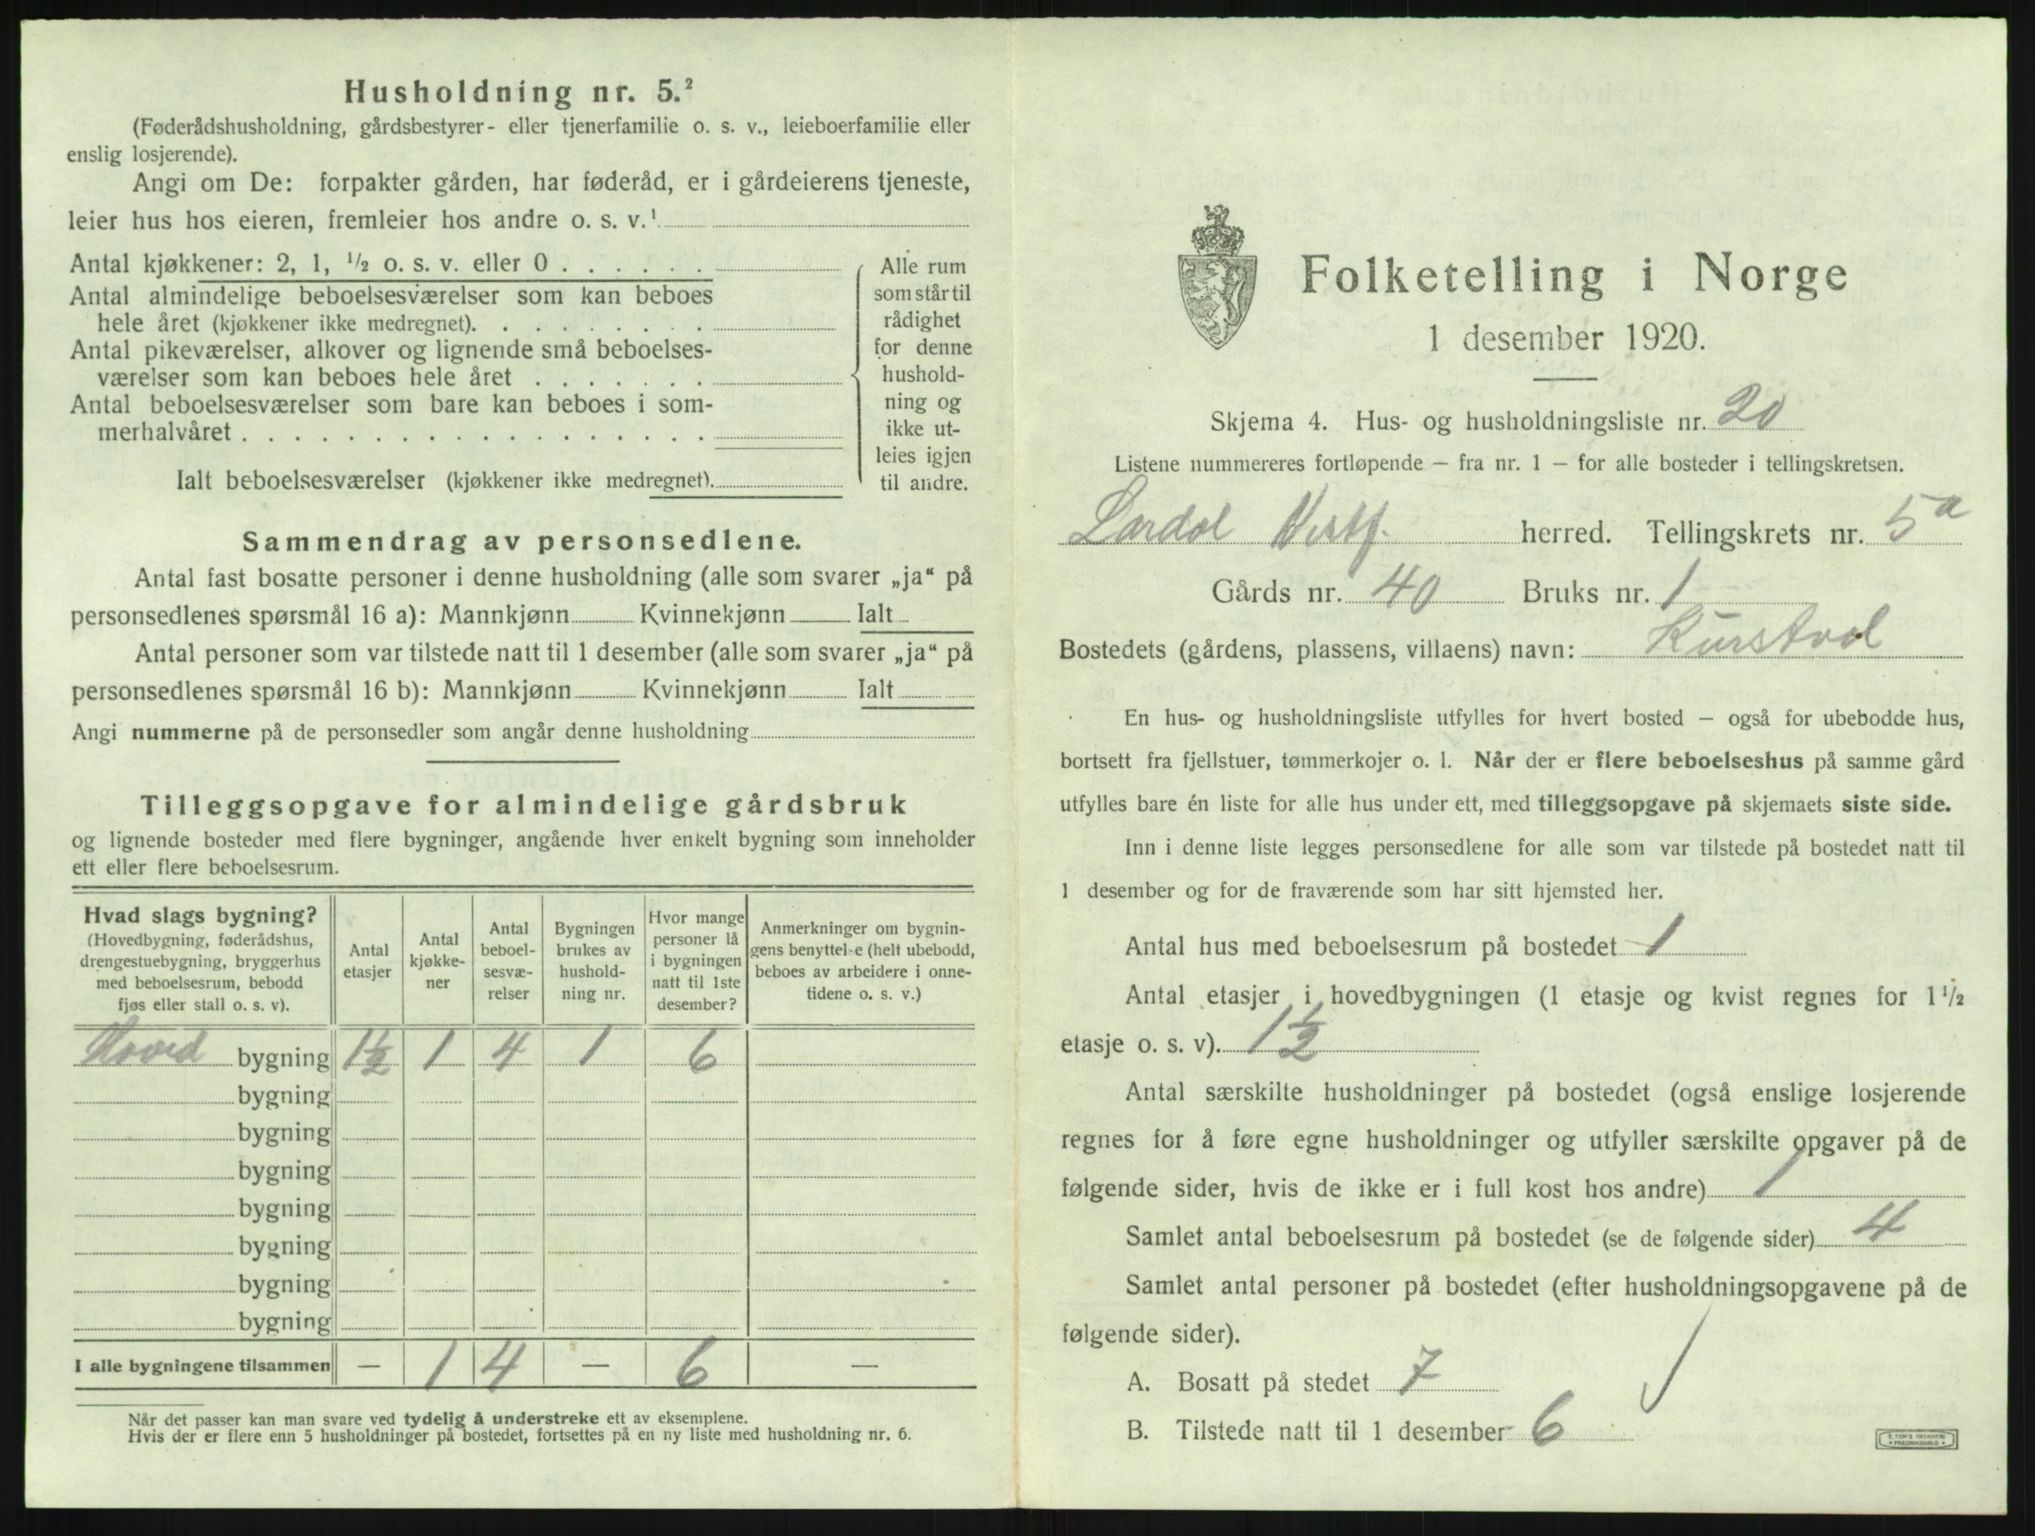 Husholdning nr. 5.²
(Føderådshusholdning, gårdsbestyrer- eller tjenerfamilie o. s. v., leieboerfamilie eller
enslig losjerende).
Angi om De: forpakter gården, har føderåd, er i gårdeierens tjeneste,
leier hus hos eieren, fremleier hos andre o. s. v.¹
Antal kjøkkener: 2, 1, ½ o. s. v. eller 0 . . . . . .
Antal almindelige beboelsesværelser som kan beboes
hele året (kjøkkener ikke medregnet). . . . . . . . .
Antal pikeværelser, alkover og lignende små beboelses-
værelser som kan beboes hele året . . . . . . .
Antal beboelsesværelser som bare kan beboes i som-
merhalvåret . . . . . . . . . . . . . . . . . .
Ialt beboelsesværelser (kjøkkener ikke medregnet).
Alle rum
som står til
rådighet
for denne
hushold-
ning og
ikke ut-
leies igjen
til andre.
Sammendrag av personsedlene.
Antal fast bosatte personer i denne husholdning (alle som svarer „ja" på
personsedlenes spørsmål 16 a): Mannkjønn Kvinnekjønn Ialt
Antal personer som var tilstede natt til 1 desember (alle som svarer „ja" på
personsedlenes spørsmål 16 b): Mannkjønn Kvinnekjønn Ialt
Angi nummerne på de personsedler som angår denne husholdning
Tilleggsopgave for almindelige gårdsbruk
og lignende bosteder med flere bygninger, angående hver enkelt bygning som inneholder
ett eller flere beboelsesrum.
Hvad slags bygning?
(Hovedbygning, føderådshus,
drengestuebygning, bryggerhus
med beboelsesrum, bebodd
fjøs eller stall o. s. v).
Antal
etasjer
Antal
kjøkke-
ner
Antal
beboel-
sesvæ-
relser
Bygningen
brukes av
hushold-
ning nr.
Hvor mange
personer lå
i bygningen
natt til 1ste
desember?
Anmerkninger om bygnin-
gens benyttelse (helt ubebodd,
beboes av arbeidere i onne-
tidene o. s. v.)
Hoved bygning 1½ 1 4 1 6
bygning
bygning
bygning
bygning
bygning
bygning
bygning
I alle bygningene tilsammen — 1 4 — 6 —
Når det passer kan man svare ved tydelig å understreke ett av eksemplene.
Hvis der er flere enn 5 husholdninger på bostedet, fortsettes på en ny liste med husholdning nr. 6.
Folketelling i Norge
1 desember 1920.
Skjema 4. Hus- og husholdningsliste nr. 20
Listene nummereres fortløpende — fra nr. 1 — for alle bosteder i tellingskretsen.
Lardal Vestf. herred. Tellingskrets nr. 5a
Gårds nr. 40 Bruks nr. 1
Bostedets (gårdens, plassens, villaens) navn:
En hus- og husholdningsliste utfylles for hvert bosted — også for ubebodde hus,
bortsett fra fjellstuer, tømmerkojer o. l. Når der er flere beboelseshus på samme gård
utfylles bare én liste for alle hus under ett, med tilleggsopgave på skjemaets siste side.
Inn i denne liste legges personsedlene for alle som var tilstede på bostedet natt til
1 desember og for de fraværende som har sitt hjemsted her.
Antal hus med beboelsesrum på bostedet 1
Antal etasjer i hovedbygningen (1 etasje og kvist regnes for 1 ½
etasje o. s. v). 1½
Antal særskilte husholdninger på bostedet (også enslige losjerende
regnes for å føre egne husholdninger og utfyller særskilte opgaver på de
følgende sider, hvis de ikke er i full kost hos andre) 1
Samlet antal beboelsesrum på bostedet (se de følgende sider) 4
Samlet antal personer på bostedet (efter husholdningsopgavene på de
følgende sider).
A. Bosatt på stedet 7
B. Tilstede natt til 1 desember 6